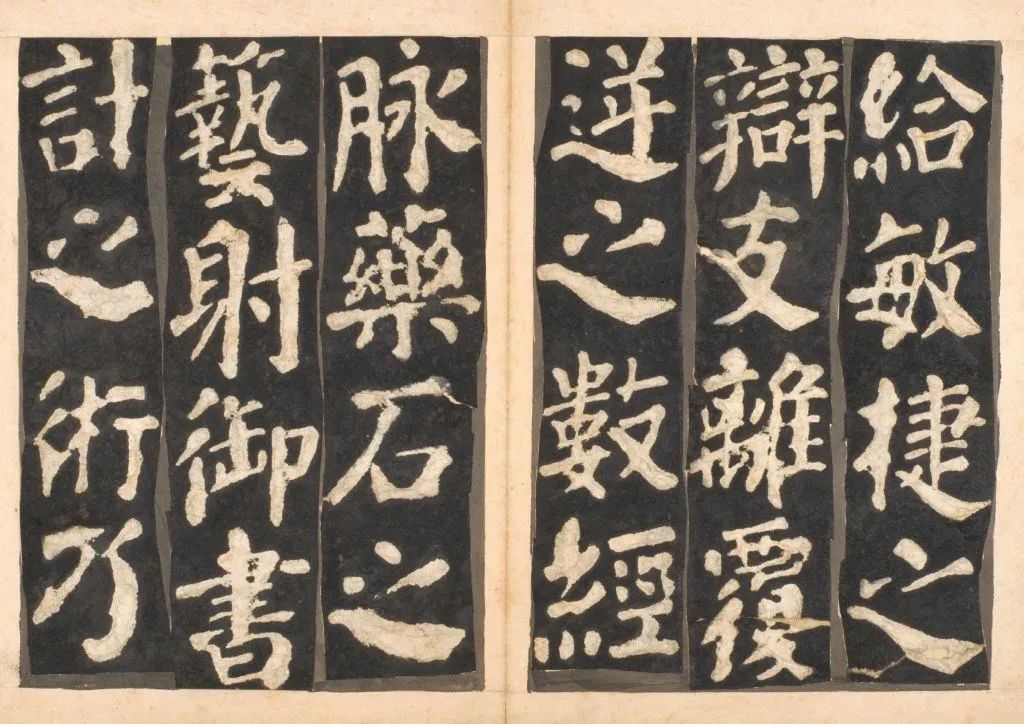 給敏捷之
辯支離覆
逆之數經
脉藥石之
藝射御書
計之術乃